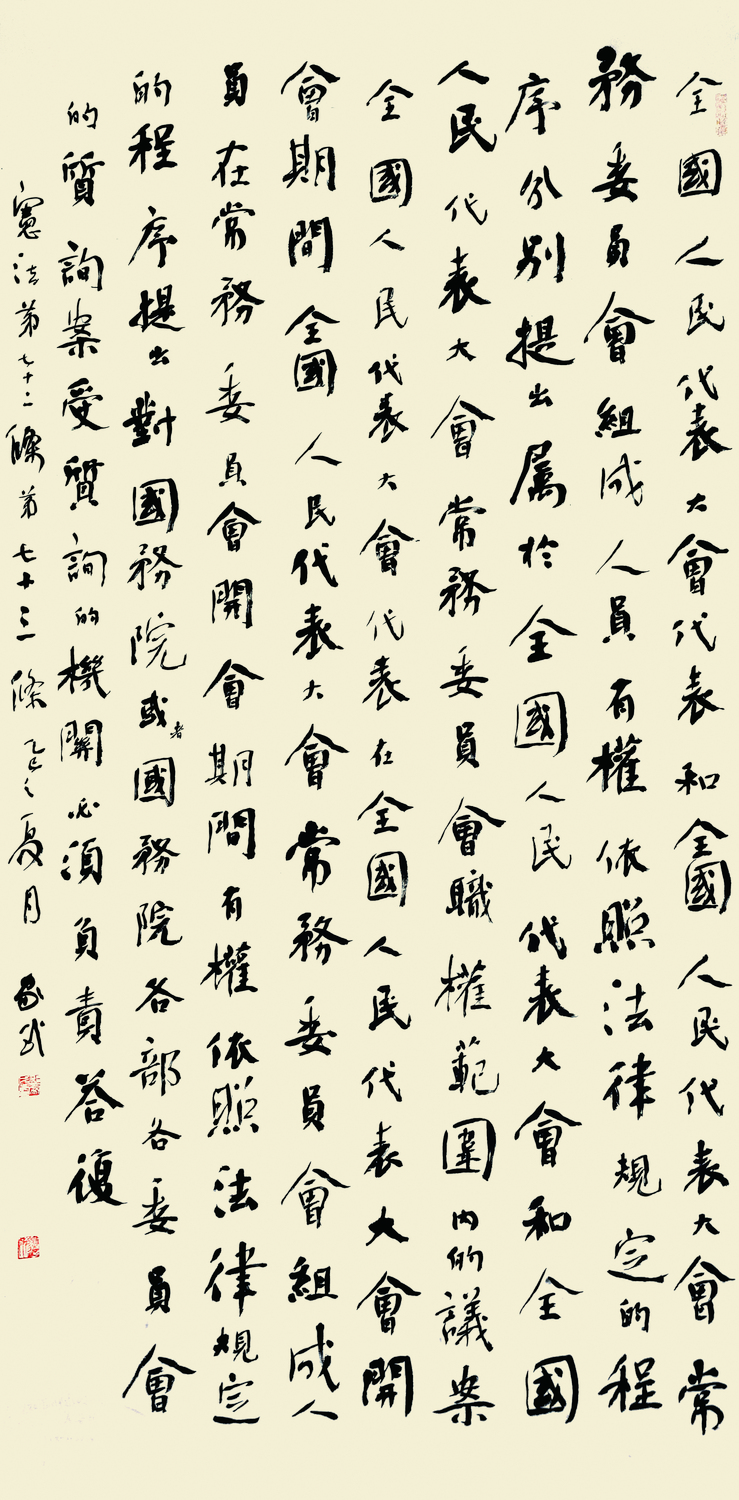 全國人民代表大會代表和全國人民代表大會常
務委員會組成人員有權依照法律規定的程
序分別提出属於全國人民代表大會和全國
人民代表大會常務委員會職權範圍内的議案
全國人民代表大會代表在全國人民代表大會開
會期間全國人民代表大會常務委員會組成人
員在常務委員會開會期間有權依照法律規定
的程序提出對國務院或者國務院各部各委員會
的質詢案受質詢的機關必須負責答復
憲法第七十二條第七十三條乙巳之夏月